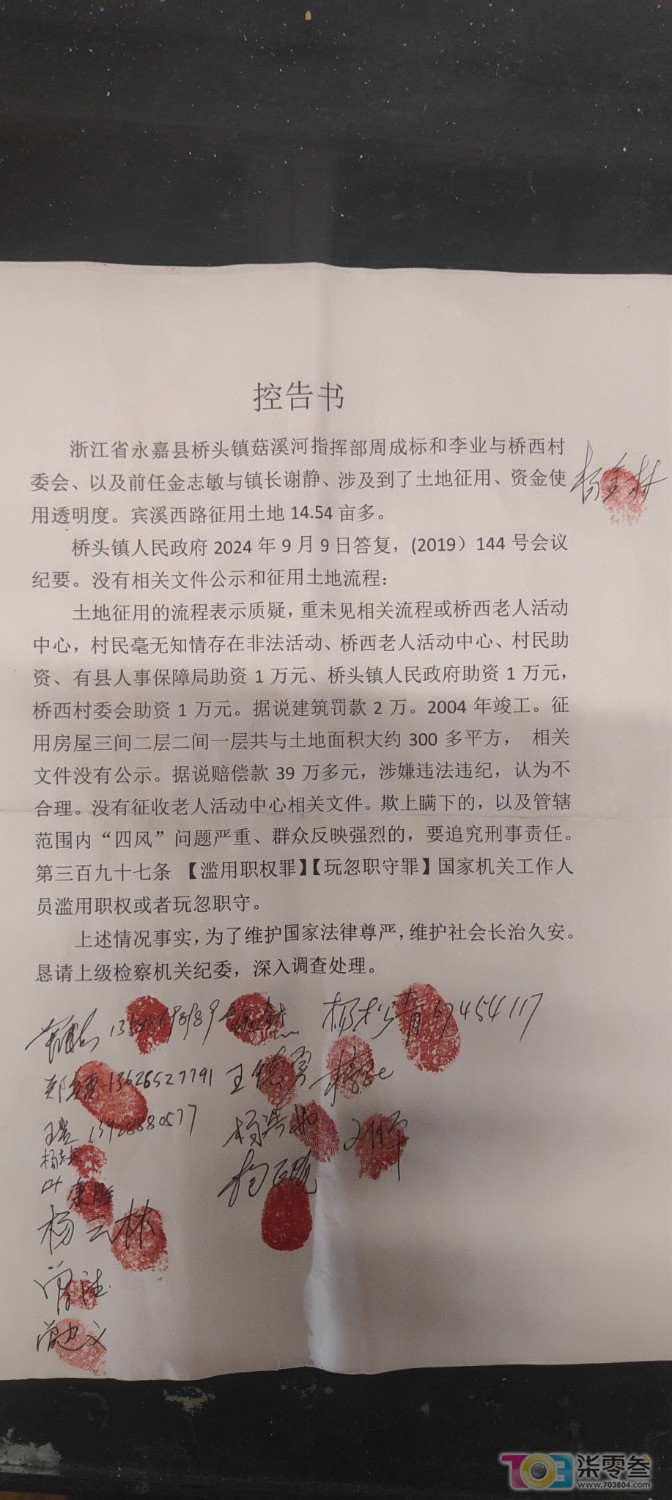 控告书
浙江省永嘉县桥头镇菇溪河指挥部周成标和李业与桥西村
委会、以及前任金志敏与镇长谢静、涉及到了土地征用、资金使
用透明度。宾溪西路征用土地 14.54 亩多。
桥头镇人民政府 2024 年 9 月 9 日答复，(2019）144 号会议
纪要。没有相关文件公示和征用土地流程：
土地征用的流程表示质疑，重未见相关流程或桥西老人活动
中心，村民毫无知情存在非法活动、桥西老人活动中心、村民助
资、有县人事保障局助资 1 万元、桥头镇人民政府助资 1 万元，
桥西村委会助资 1 万元。据说建筑罚款 2 万。2004 年竣工。征
用房屋三间二层二间一层共与土地面积大约 300 多平方， 相关
文件没有公示。据说赔偿款 39 万多元，涉嫌违法违纪，认为不
合理。没有征收老人活动中心相关文件。欺上瞒下的，以及管辖
范围内“四风”问题严重、群众反映强烈的，要追究刑事责任。
第三百九十七条 【滥用职权罪】【玩忽职守罪】国家机关工作人
员滥用职权或者玩忽职守。
上述情况事实，为了维护国家法律尊严，维护社会长治久安。
恳请上级检察机关纪委，深入调查处理。
13628527791
杨云林
柒零叁
www.703804.com